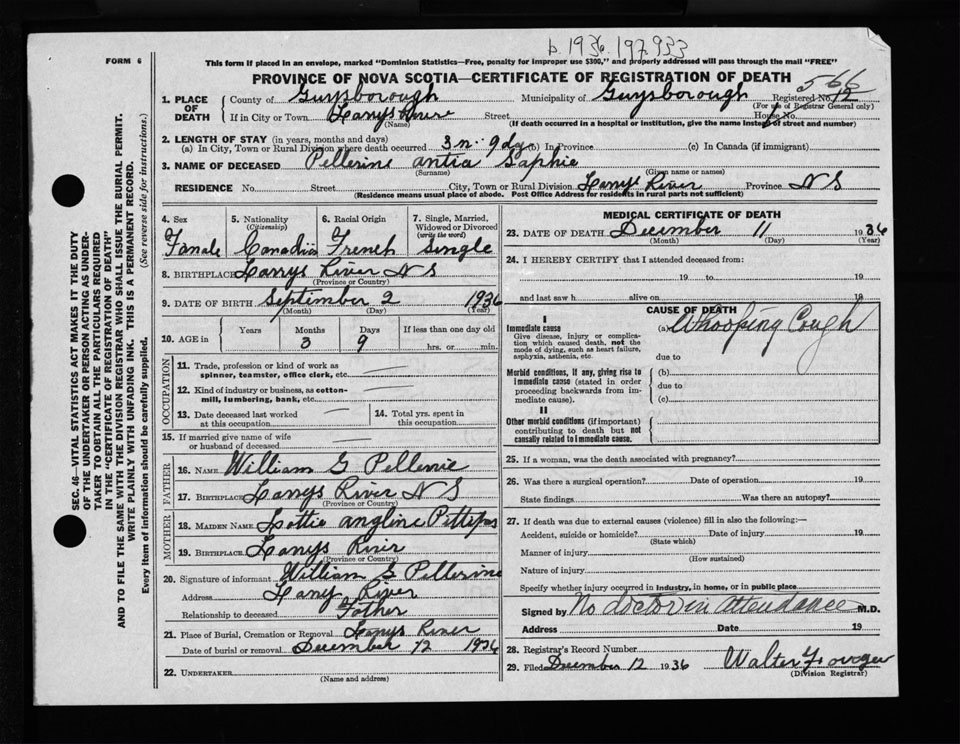 b. 1936. 197933
FORM 6
This form if placed in an envelope, marked "Dominion Statistics—Free, penalty for improper use $300," and properly addressed will pass through the mail "FREE"
PROVINCE OF NOVA SCOTIA—CERTIFICATE OF REGISTRATION OF DEATH
1. PLACE OF DEATH
County of Guysborough Municipality of Guysborough Registered No. 12
(For use of Registrar General only)
If in City or Town Larrys River Street House No.
(Name) (If death occurred in a hospital or institution, give the name instead of street and number)
2. LENGTH OF STAY (in years, months and days)
(a) In City, Town or Rural Division where death occurred 3 m. 9 dys (b) In Province (c) In Canada (if immigrant)
3. NAME OF DECEASED Pellerine antia Saphie
(Surname) (Given name or names)
RESIDENCE No. Street City, Town or Rural Division Larrys River Province N S
(Residence means usual place of abode. Post Office Address for residents in rural parts not sufficient)
SEC. 46—VITAL STATISTICS ACT MAKES IT THE DUTY
OF THE UNDERTAKER OR PERSON ACTING AS UNDER-
TAKER TO OBTAIN ALL THE PARTICULARS REQUIRED
IN THE "CERTIFICATE OF REGISTRATION OF DEATH"
AND TO FILE THE SAME WITH THE DIVISION REGISTRAR WHO SHALL ISSUE THE BURIAL PERMIT.
WRITE PLAINLY WITH UNFADING INK. THIS IS A PERMANENT RECORD.
Every item of information should be carefully supplied. (See reverse side for instructions.)
4. Sex 5. Nationality (Citizenship) 6. Racial Origin 7. Single, Married, Widowed or Divorced (write the word)
Famale Canadian French Single
8. BIRTHPLACE Larrys River N S
(Province or Country)
9. DATE OF BIRTH September 2 1936
(Month) (Day) (Year)
10. AGE in Years Months Days If less than one day old
3 9 hrs. or min.
OCCUPATION
11. Trade, profession or kind of work as
spinner, teamster, office clerk, etc.
12. Kind of industry or business, as cotton-
mill, lumbering, bank, etc.
13. Date deceased last worked
at this occupation
14. Total yrs. spent in
this occupation
15. If married give name of wife
or husband of deceased
FATHER
16. NAME William G Pellerine
17. BIRTHPLACE Larrys River N S
(Province or Country)
MOTHER
18. MAIDEN NAME Lottie angline Pettipas
19. BIRTHPLACE Larrys River
(Province or Country)
20. Signature of informant William G Pellerine
Address Larrys River
Relationship to deceased Father
21. Place of Burial, Cremation or Removal Larrys River
Date of burial or removal December 12 1936
22. UNDERTAKER
(Name and address)
MEDICAL CERTIFICATE OF DEATH
23. DATE OF DEATH December 11 1936
(Month) (Day) (Year)
24. I HEREBY CERTIFY that I attended deceased from:
19 to 19
and last saw h alive on 19
CAUSE OF DEATH
I
Immediate cause
Give disease, injury or complica-
tion which caused death, not the
mode of dying, such as heart failure,
asphyxia, asthenia, etc.
(a) Whooping Cough
due to
Morbid conditions, if any, giving rise to
immediate cause (stated in order
proceeding backwards from im-
mediate cause).
(b)
due to
(c)
II
Other morbid conditions (if important)
contributing to death but not
causally related to immediate cause.
25. If a woman, was the death associated with pregnancy?
26. Was there a surgical operation? Date of operation 19
State findings Was there an autopsy?
27. If death was due to external causes (violence) fill in also the following:—
Accident, suicide or homicide? Date of injury 19
(State which)
Manner of injury
(How sustained)
Nature of injury
Specify whether injury occurred in industry, in home, or in public place
Signed by No doctor in attendance M.D.
Address Date 19
28. Registrar's Record Number
29. Filed December 12 1936 Walter
(Division Registrar)